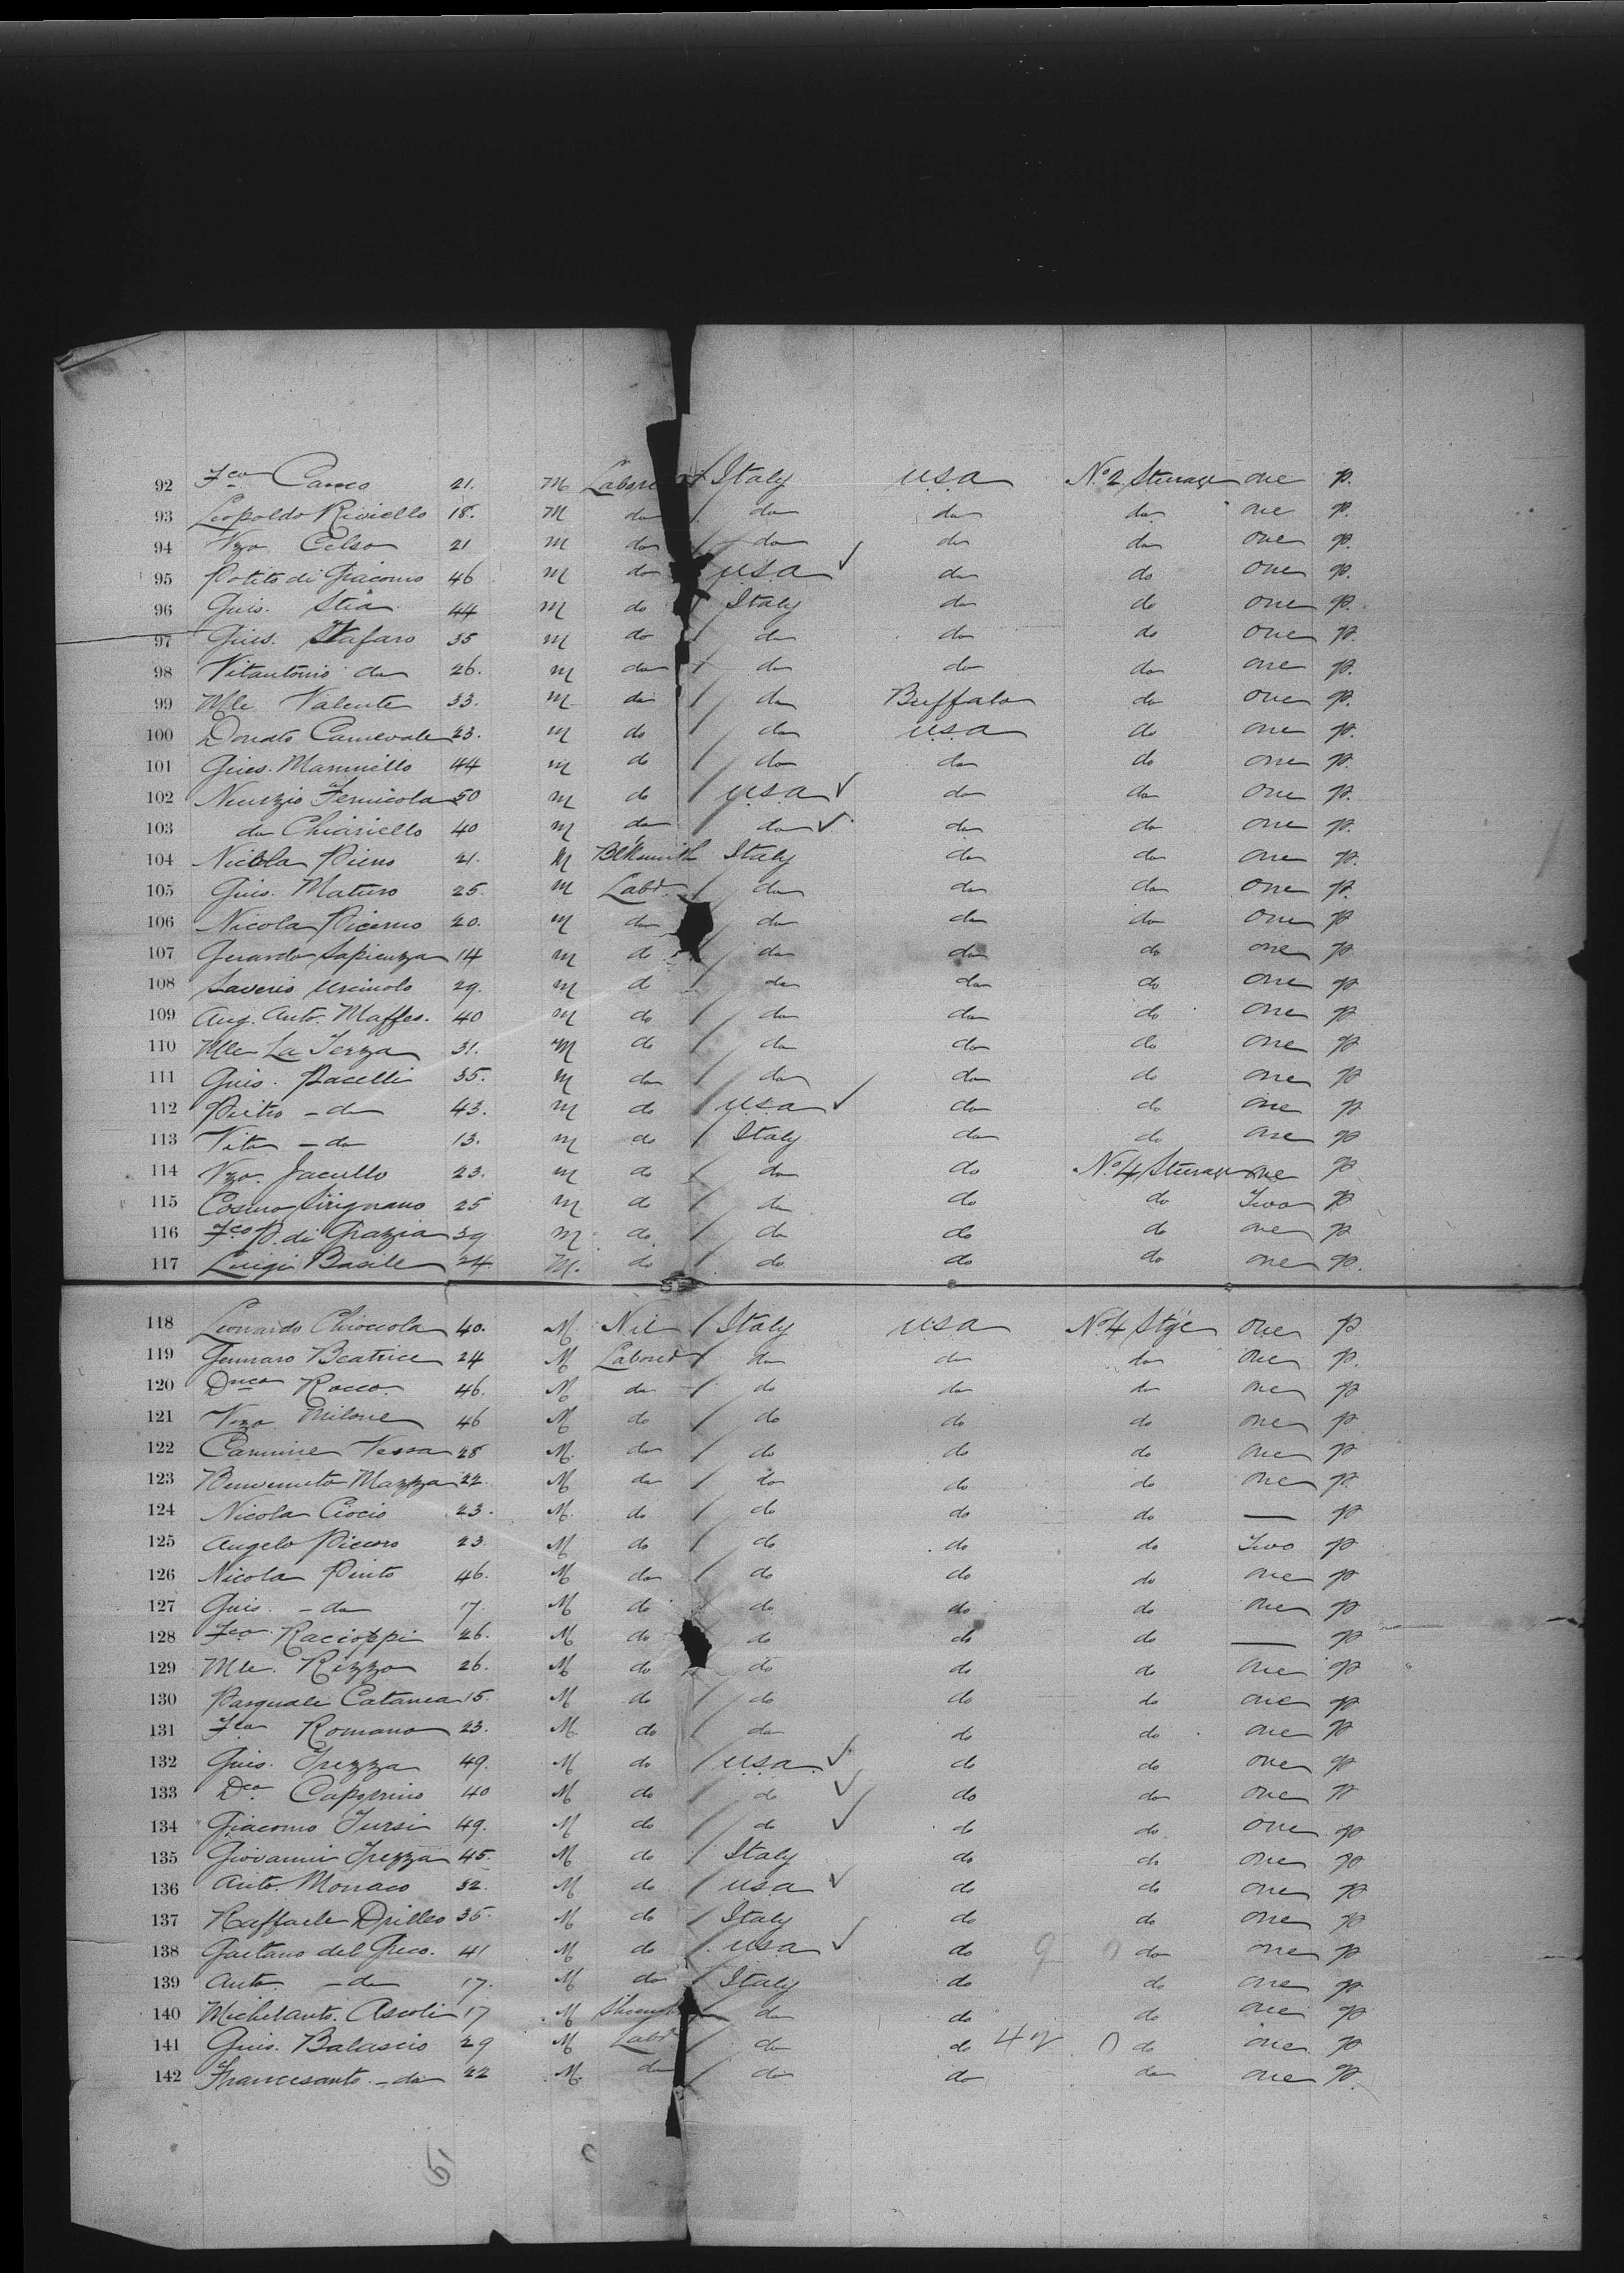 92 Fco Canco 21. M Labore Italy U.S.A No. 2 Steerage one p.
93 Leopoldo Riviello 18. M do do do do one p.
94 Vzo Celso 21 M do do ✓ do do one p.
95 Potito di Giacomo 46 M do U.S.A do do one p.
96 Guis. Stia 44 M do Italy do do one p.
97 Guis. Stafaro 35 M do do do do one p.
98 Vitantonio do 26. M do do do do one p.
99 Mle Valente 33. M do do Buffalo do one p.
100 Donato Carnevale 23. M do do U.S.A do one p.
101 Guis. Manniello 44 M do do do do one p.
102 Nunzio Fernicola 50 M do U.S.A ✓ do do one p.
103 do Chiariello 40 M do do ✓ do do one p.
104 Nicola Picno 21. M Blksmith Italy do do one p.
105 Guis. Maturo 25. M Labr. do do do one p.
106 Nicola Picerno 20. M do do do do one p
107 Gerardo Sapienza 14 M do do do do one p
108 Saverio 29. M d do do do one p
109 Ang. Anto. Maffeo. 40 M do do do do one p
110 Mle La Terza 31. M do do do do one p
111 Guis. Pacelli 35. M do do do do one p
112 Pietro - do 43. M do U.S.A ✓ do do one p
113 Vito - do 13. M do Italy do do one p
114 Vzo. Jacullo 23. M do do do No. 4 Steerage one p
115 Cosmo Sirignano 25 M do do do do Two p
116 Fco P. di Grazia 39 M do do do do one p
117 Luigi Basile 24 M. do do do do one p.
118 Leonardo Chioccola 40. M Nil Italy U.S.A No. 4 Stge one p
119 Gennaro Beatrice 24 M Laborer do do do one p.
120 Dnco Rocco. 46. M do do do do one p
121 Vzo Milone 46 M do do do do one p
122 Carmine Vessa 28 M. do do do do one p
123 Benvenuto Mazza 22. M do do do do one p.
124 Nicola Ciocio 23. M. do do do do — p
125 Angelo Piccoro 23 M do do do do Two p
126 Nicola Pinto 46. M do do do do one p
127 Guis. - do 17. M do do do do one p
128 Fco Racioppi 26. M do do do do — p
129 Mle. Rizzo 26. M do do do do one p
130 Pasquale Catanea 15. M do do do do one p
131 Fco Romano 23. M. do do do do one p
132 Guis. Trezza 49. M do U.S.A. ✓ do do one p
133 Dco Caporrino 40 M do do ✓ do do one p
134 Giacomo Tursi 49. M do do ✓ do do one p
135 Giovanni Trezza 45. M do Italy do do one p
136 Anto. Monaco 32. M do U.S.A ✓ do do one p
137 Raffaele Drilleo 35. M do Italy do do one p
138 Gaetano del Greco. 41 M do U.S.A ✓ do do one p
139 Anto - do 17. M do Italy do do one p
140 Michelanto. Ascoli 17 M do do do one p
141 Guis. Balascio 29 M Labr do do do one p
142 Francesanto. - do 22 M. do do do do one p.